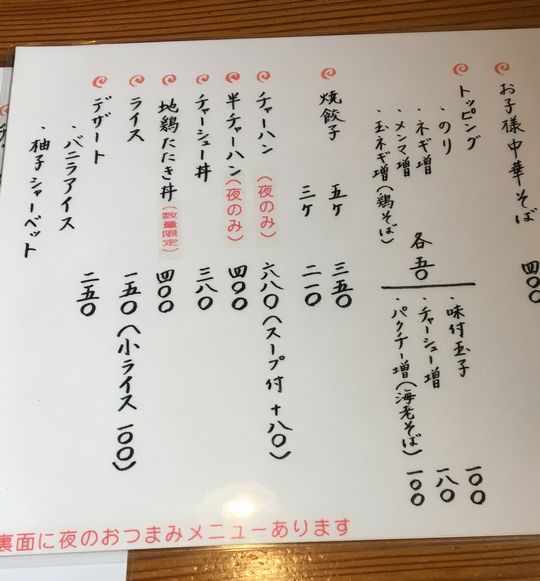 お子様中華そば 四〇〇
トッピング
・のり
・ネギ増
・メンマ増
・玉ネギ増(鶏そば)
各五〇
・味付玉子 一〇〇
・チャーシュー増 一八〇
・パクチー増(海老そば) 一〇〇
焼餃子 五ケ 三五〇
三ケ 二一〇
チャーハン (夜のみ) 六八〇(スープ付+八〇)
半チャーハン(夜のみ) 四〇〇
チャーシュー丼 三八〇
地鶏たたき丼(数量限定) 四〇〇
ライス 一五〇(小ライス一〇〇)
デザート 二五〇
・バニラアイス
・柚子シャーベット
裏面に夜のおつまみメニューあります